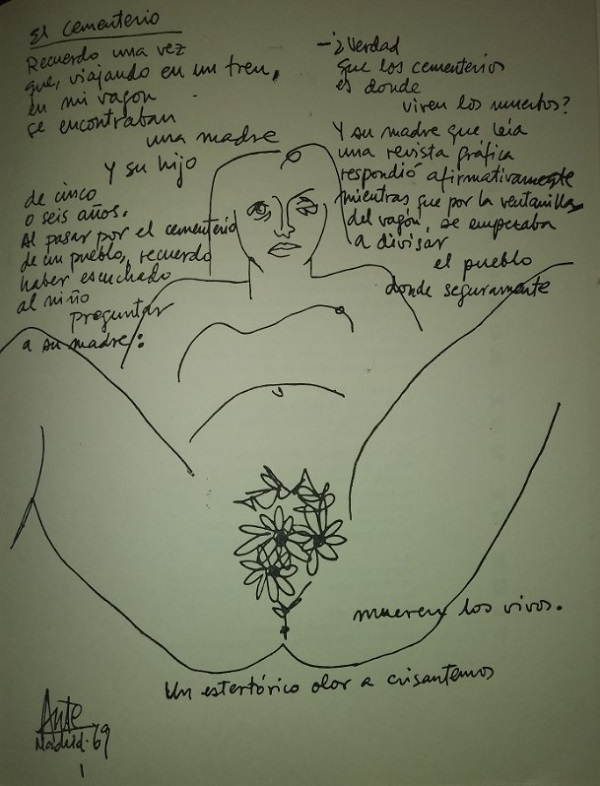 El Cementerio
Recuerdo una vez
que, viajando en un tren,
en mi vagón
se encontraban
una madre
y su hijo
de cinco
o seis años.
Al pasar por el cementerio
de un pueblo, recuerdo
haber escuchado
al niño
preguntar
a su madre:
-¿Verdad
que los cementerios
es donde
viven los muertos?
Y su madre que leía
una revista gráfica
respondió afirmativamente
mientras que por la ventanilla
del vagón, se empezaba
a divisar
el pueblo
donde seguramente
mueren los vivos.
Un estertórico olor a crisantemos
Ante
Madrid-69
1